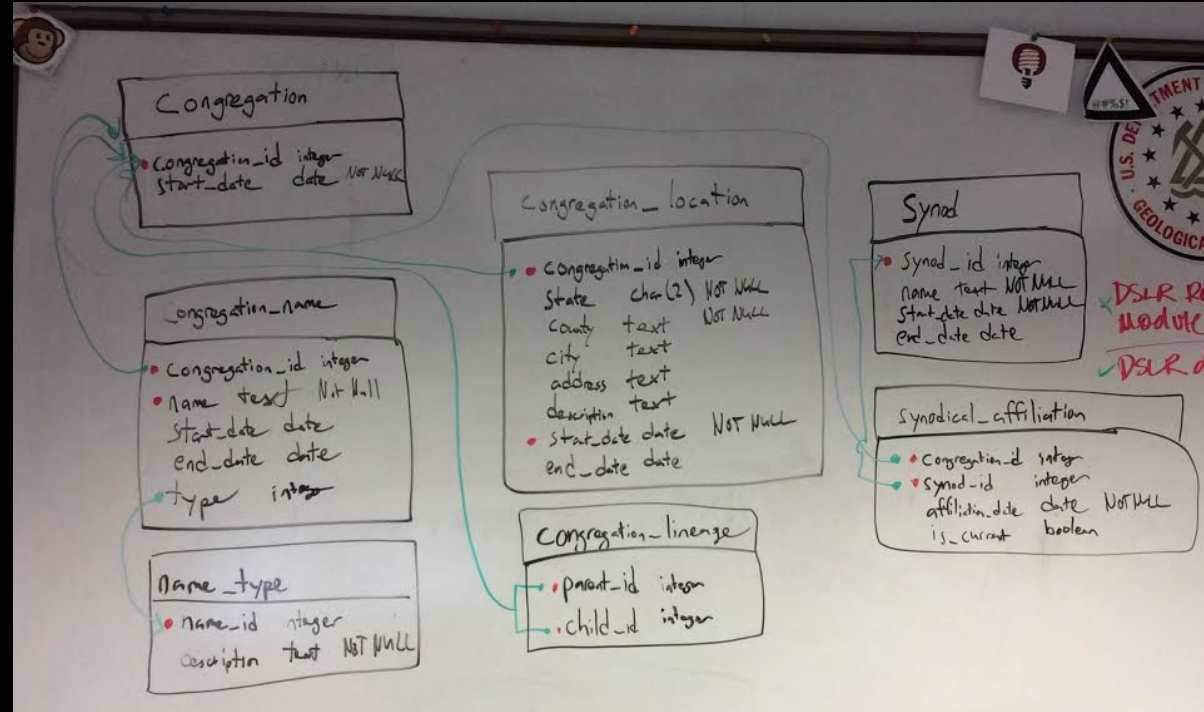 Congregation
congregation_id integer
start_date date NOT NULL
Congregation_name
congregation_id integer
name text Not Null
start_date date
end_date date
type integer
name_type
name_id integer
description text NOT NULL
Congregation_location
congregation_id integer
state char(2) NOT NULL
county text NOT NULL
city text
address text
description text
start_date date NOT NULL
end_date date
Congregation_lineage
parent_id integer
child_id integer
Synod
synod_id integer
name text NOT NULL
start_date date NOT NULL
end_date date
synodical_affiliation
congregation_id integer
synod_id integer
affiliation_date date NOT NULL
is_current boolean
@#%$!
U.S. DE
TMENT
GEOLOGICA
DSLR
Module
DSLR